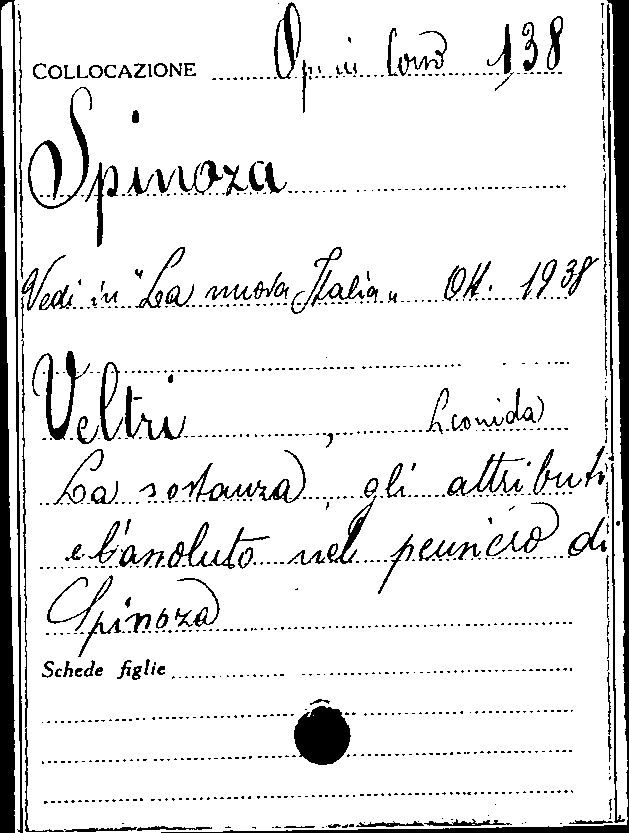 COLLOCAZIONE 1,38
Spinoza
Vedi in "La nuova Italia" Ott. 1938
Veltri, Leonida
La sostanza, gli attributi
e l'assoluto nel pensiero di
Spinoza
Schede figlie